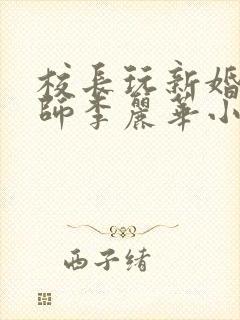 校長玩新婚
師李麗華小
西子绪